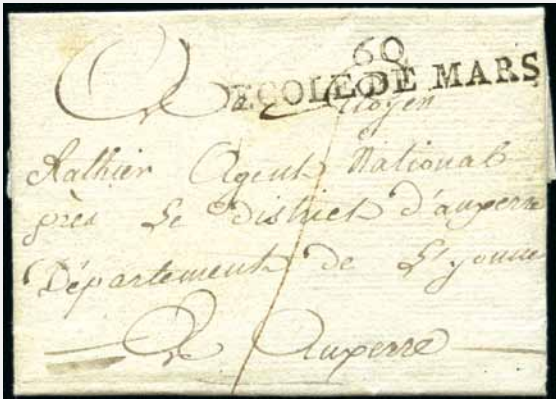 60
ECOLE DE MARS
Au Citoyen
Rathier Agent National
près Le District d'auxerre
Département de L'yonne
A Auxerre